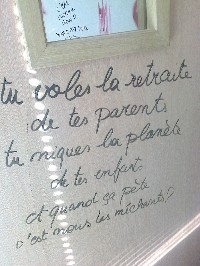 tu voles la retraite
de tes parents
tu niques la planète
de tes enfants
et quand ça pète
c'est nous les méchants?